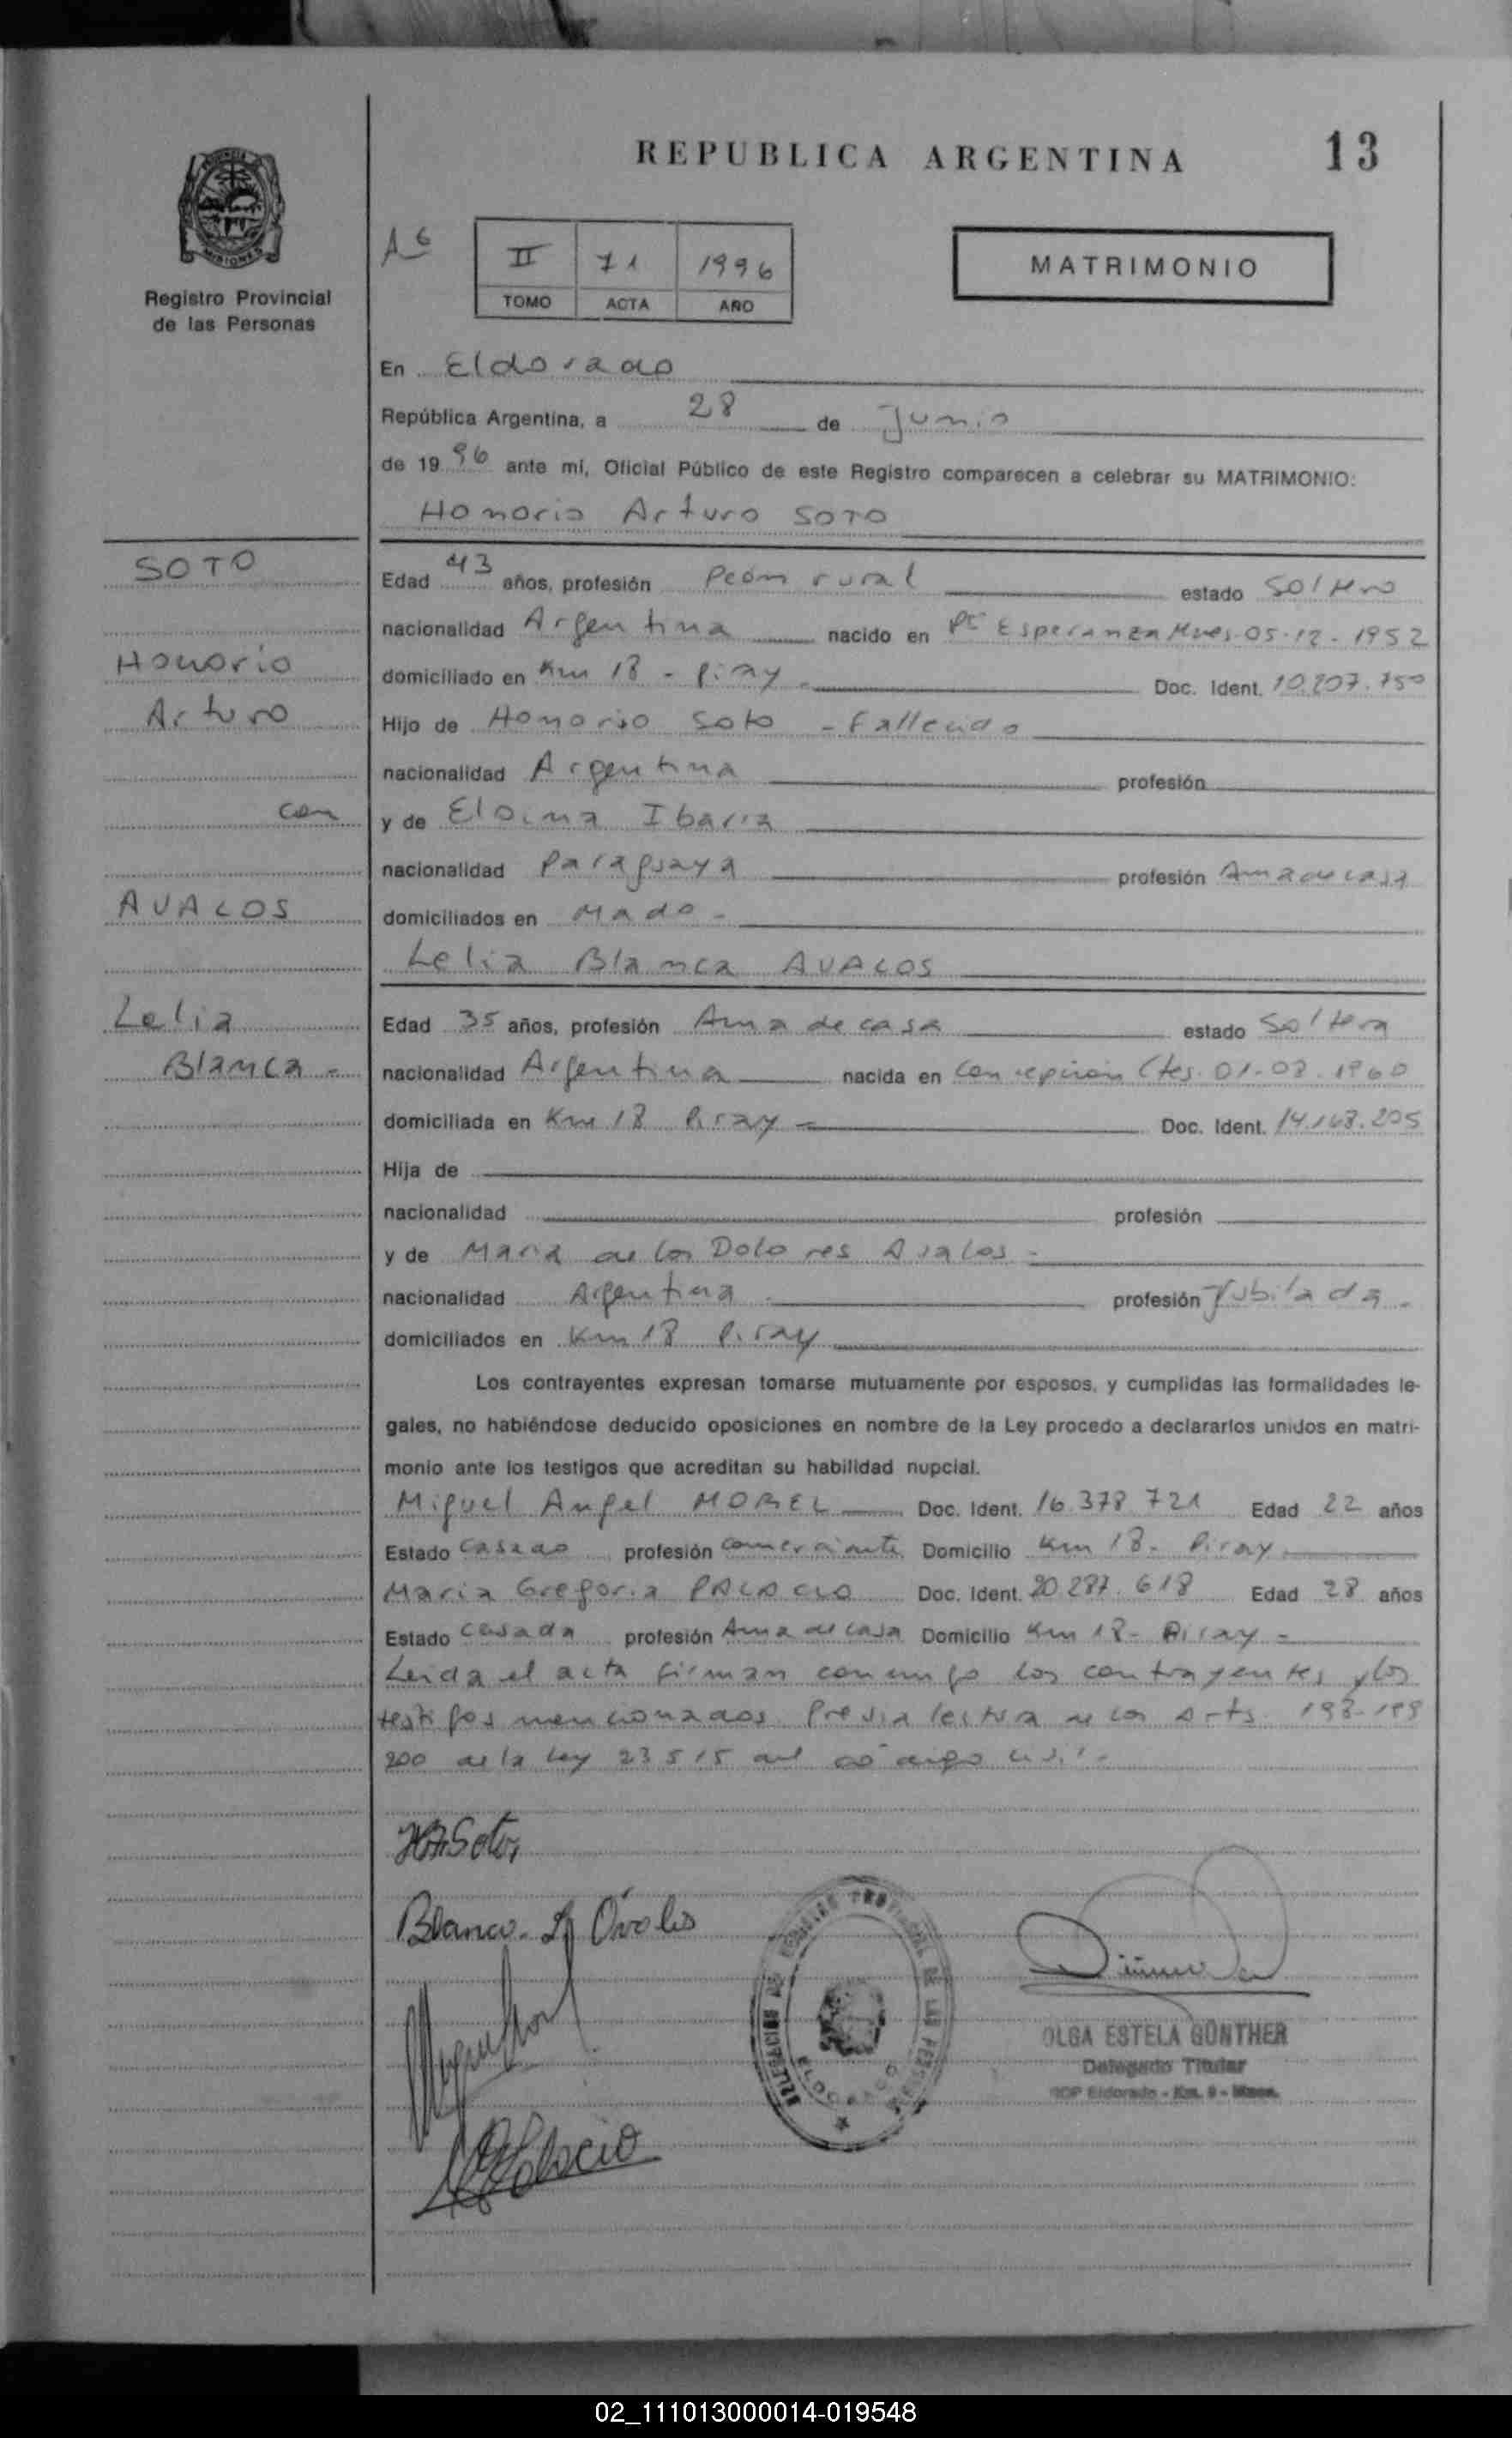 REPUBLICA ARGENTINA 13
MISIONES
Registro Provincial
de las Personas
II 71 1996
TOMO ACTA AÑO
MATRIMONIO
En Eldorado
República Argentina, a 28 de Junio
de 1996 ante mí, Oficial Público de este Registro comparecen a celebrar su MATRIMONIO:
Honorio Arturo SOTO
SOTO
Honorio
Arturo
con
AVALOS
Lelia
Blanca -
Edad 43 años, profesión Peón rural estado Soltero
nacionalidad Argentina nacido en Pto Esperanza Mnes. 05-12-1952
domiciliado en Km 18 - Piray - Doc. Ident. 10.207.750
Hijo de Honorio Soto - Fallecido
nacionalidad Argentina profesión
y de Eloina Ibarra
nacionalidad Paraguaya profesión Ama de casa
domiciliados en Mado -
Lelia Blanca AVALOS
Edad 35 años, profesión Ama de casa estado Soltera
nacionalidad Argentina nacida en Concepción Ctes. 01-08-1960
domiciliada en Km 18 Piray - Doc. Ident. 14.168.205
Hija de
nacionalidad profesión
y de María de los Dolores Avalos -
nacionalidad Argentina profesión Jubilada.
domiciliados en Km 18 Piray
Los contrayentes expresan tomarse mutuamente por esposos, y cumplidas las formalidades le-
gales, no habiéndose deducido oposiciones en nombre de la Ley procedo a declararlos unidos en matri-
monio ante los testigos que acreditan su habilidad nupcial.
Miguel Angel MOREL Doc. Ident. 16.378.721 Edad 22 años
Estado casado profesión comerciante Domicilio Km 18 - Piray
María Gregoria PALACIO Doc. Ident. 20.287.618 Edad 28 años
Estado casada profesión Ama de casa Domicilio Km 18 - Piray -
Leida el acta firman conmigo los contrayentes y los
testigos mencionados. Previa lectura de los Arts. 198-199
200 de la Ley 23515 del código civil -
HASoto
Blanca. L Avalos
Palacio
OLGA ESTELA GÜNTHER
Delegado Titular
Eldorado - Km. 9 - Mnes.
02_111013000014-019548